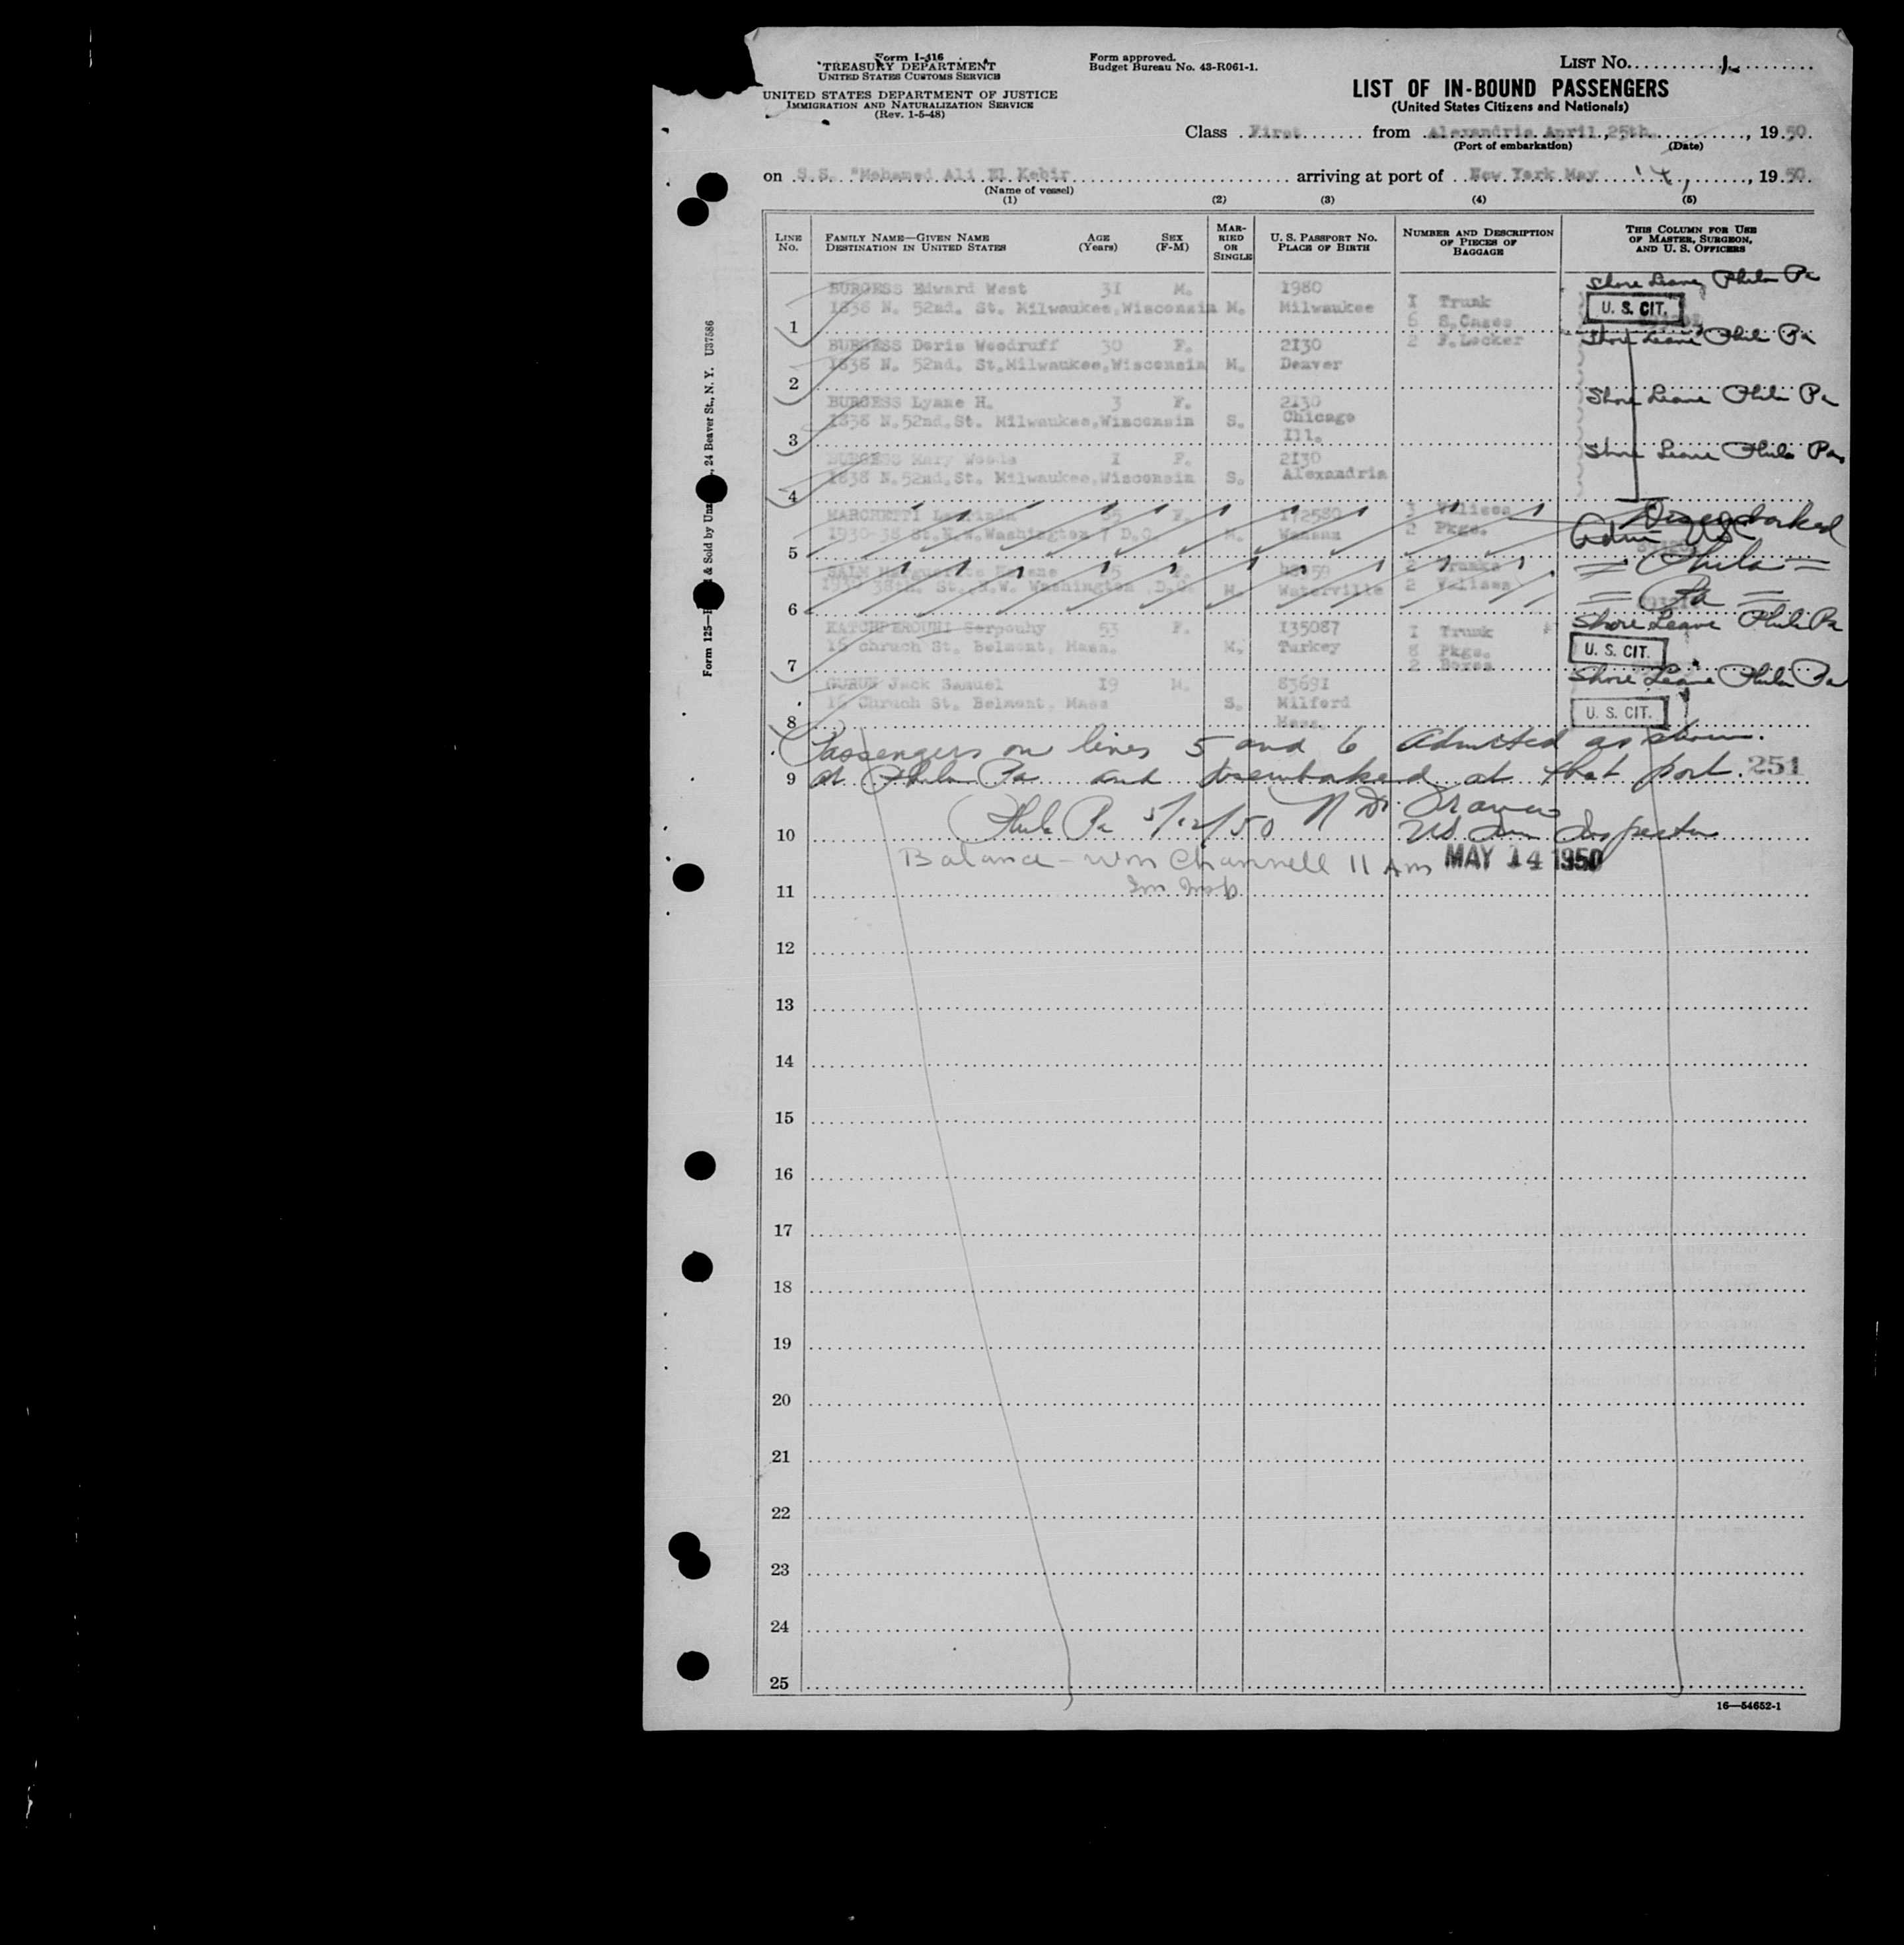 Form I-416
TREASURY DEPARTMENT
UNITED STATES CUSTOMS SERVICE
UNITED STATES DEPARTMENT OF JUSTICE
IMMIGRATION AND NATURALIZATION SERVICE
(Rev. 1-5-48)
Form approved.
Budget Bureau No. 43-R061-1.
LIST No. 1
LIST OF IN-BOUND PASSENGERS
(United States Citizens and Nationals)
Class First from Alexandria April 25th, 1950
(Port of embarkation) (Date)
on S.S. "Mohamed Ali El Kebir arriving at port of New York May 14, 1950
(Name of vessel)
(1) (2) (3) (4) (5)
LINE No. FAMILY NAME—GIVEN NAME DESTINATION IN UNITED STATES AGE (Years) SEX (F-M) MARRIED OR SINGLE U. S. PASSPORT NO. PLACE OF BIRTH NUMBER AND DESCRIPTION OF PIECES OF BAGGAGE THIS COLUMN FOR USE OF MASTER, SURGEON, AND U. S. OFFICERS
BURGESS Edward West 31 M. 1980 Shore Leave Phila Pa
1838 N. 52nd. St. Milwaukee,Wisconsin M. Milwaukee 1 Trunk U. S. CIT.
1 6 S.Cases
BURGESS Doris Woodruff 30 F. 2130 2 F.Locker Shore Leave Phila Pa
1838 N. 52nd. St.Milwaukee,Wisconsin M. Denver
2
BURGESS Lynne H. 3 F. 2130 Shore Leave Phila Pa
1838 N.52nd.St. Milwaukee,Wisconsin S. Chicago
3 Ill.
BURGESS Mary Woods 1 F. 2130 Shore Leave Phila Pa
1838 N.52nd.St. Milwaukee,Wisconsin S. Alexandria
4
MARCHETTI 65 F. 172580 3 Valises Disembarked
1930-38 St.N.W.Washington 7 D.C. M. Kansas 2 Pkgs. Adm
5
SALM Marguerite 25 F. 2 Trunks Phila
1930 38th. St. N.W. Washington D.C. M. Waterville 2 Valises Pa
6
KATCHPEROUHI Serpouhy 53 F. 135087 1 Trunk Shore Leave Phila Pa
16 chruch St. Belmont, Mass. M. Turkey 8 Pkgs. U. S. CIT.
7 2 Boxes
GURUN Jack Samuel 19 M. 83691 Shore Leave Phila Pa
16 Chruch St. Belmont, Mass S. Milford U. S. CIT.
8 Mass.
Passengers on lines 5 and 6 admitted as shown.
9 at Phila Pa and disembarked at that port. 251
Phila Pa 5/12/50
10 US Imm Inspector
Balance - Wm Channell 11 Am MAY 14 1950
11 Im Insp
12
13
14
15
16
17
18
19
20
21
22
23
24
25
16—54652-1
Form 125— & Sold by , 24 Beaver St., N. Y. U37586